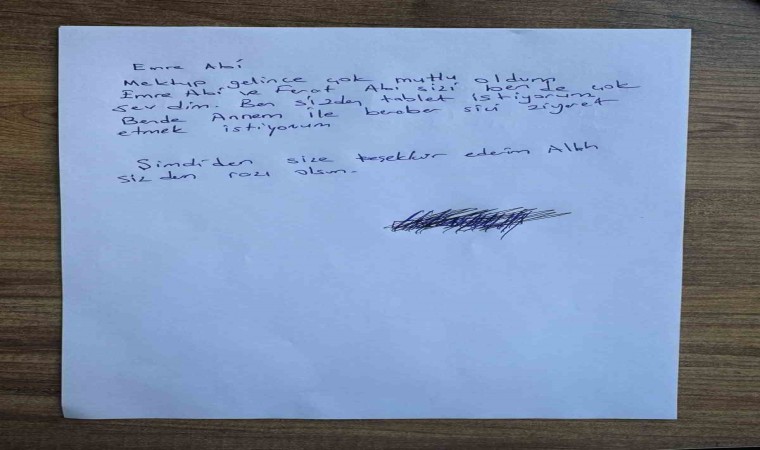 Emre Abi
Mektup gelince çok mutlu oldum
Emre Abi ve Ferat Abi sizi ben de çok
sevdim. Ben sizden tablet istiyorum
Bende Annem ile beraber sizi ziyaret
etmek istiyorum
Şimdiden size teşekkür ederim Allah
sizden razı olsun.